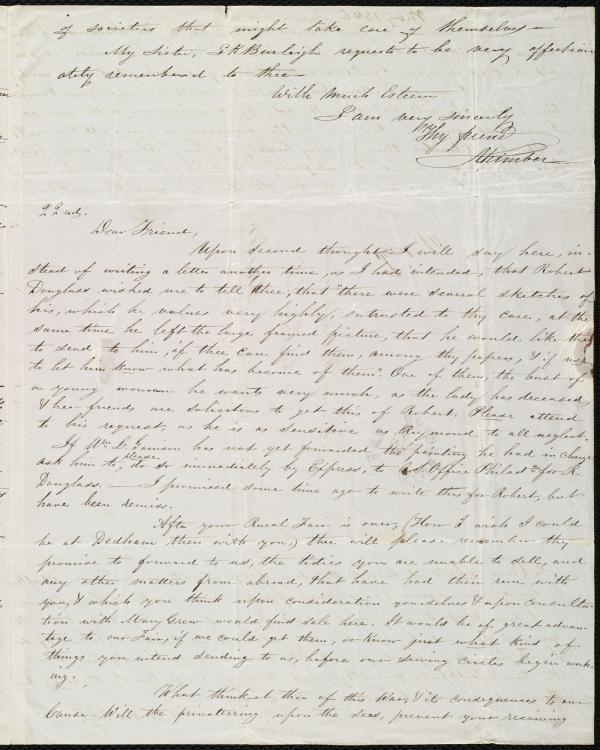 of societies that might take care of themselves—
My Sister, G K Burleigh requests to be very affection
ately remembered to thee—
With Much Esteem
I am very sincerely
Thy friend
A Kimber
22nd.
Dear Friend,
Upon second thought I will say here, in-
stead of writing a letter another time, as I had intended, that Robert
Douglass wished me to tell thee, that "there were several sketches of
his, which he values very highly, intrusted to thy care, at the
same time he left the large framed picture, that he would like thee
to send to him, if thee can find them, among thy papers, & if not
to let him know what has become of them". One of them, the bust of
a young woman he wants very much, as the lady has deceased,
& her friends are solicitous to get this of Robert. Please attend
to his request, as he is as sensitive as Raymond to all neglect.
If Wm L. Garrison has not yet forwarded the painting he had in charge
ask him to, please, do so immediately by Express, to A.S. Office Philada for R.
Douglass. — I promised some time ago to write this for Robert, but
have been remiss.
After your Rural Fair is over, (How I wish I could
be at Dedham then with you,) thee will please remember thy
promise to forward to us, the tidies you are unable to sell, and
any other matters from abroad, that have had their run with
you, & which you think upon consideration yourselves & upon consulta-
tion with Mary Grew would find sale here. It would be of great advan-
tage to our Fair, if we could get them, or know just what kind of
things you intend sending to us, before our Sewing Circles begin work-
ing.
What thinkest thou of this War, & its consequences to our
Cause. Will the privateering upon the Seas, prevent your receiving